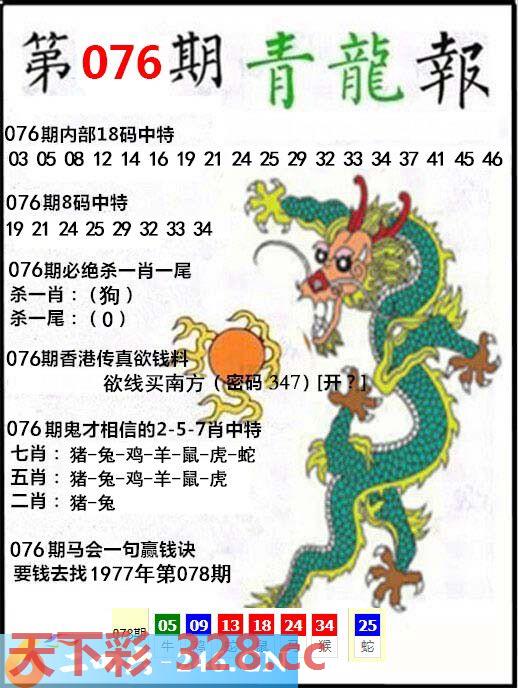 第076期 青龍報
076期内部18码中特
03 05 08 12 14 16 19 21 24 25 29 32 33 34 37 41 45 46
076期8码中特
19 21 24 25 29 32 33 34
076期必绝杀一肖一尾
杀一肖：（狗）
杀一尾：（0）
076期香港传真欲钱料
欲线买南方（密码 347）[开？]
076期鬼才相信的2-5-7肖中特
七肖：猪-兔-鸡-羊-鼠-虎-蛇
五肖：猪-兔-鸡-羊-鼠-虎
二肖：猪-兔
076期马会一句赢钱诀
要钱去找1977年第078期
05 09 13 18 24 34 25
牛 鼠 猴 蛇
天下彩-328.cc